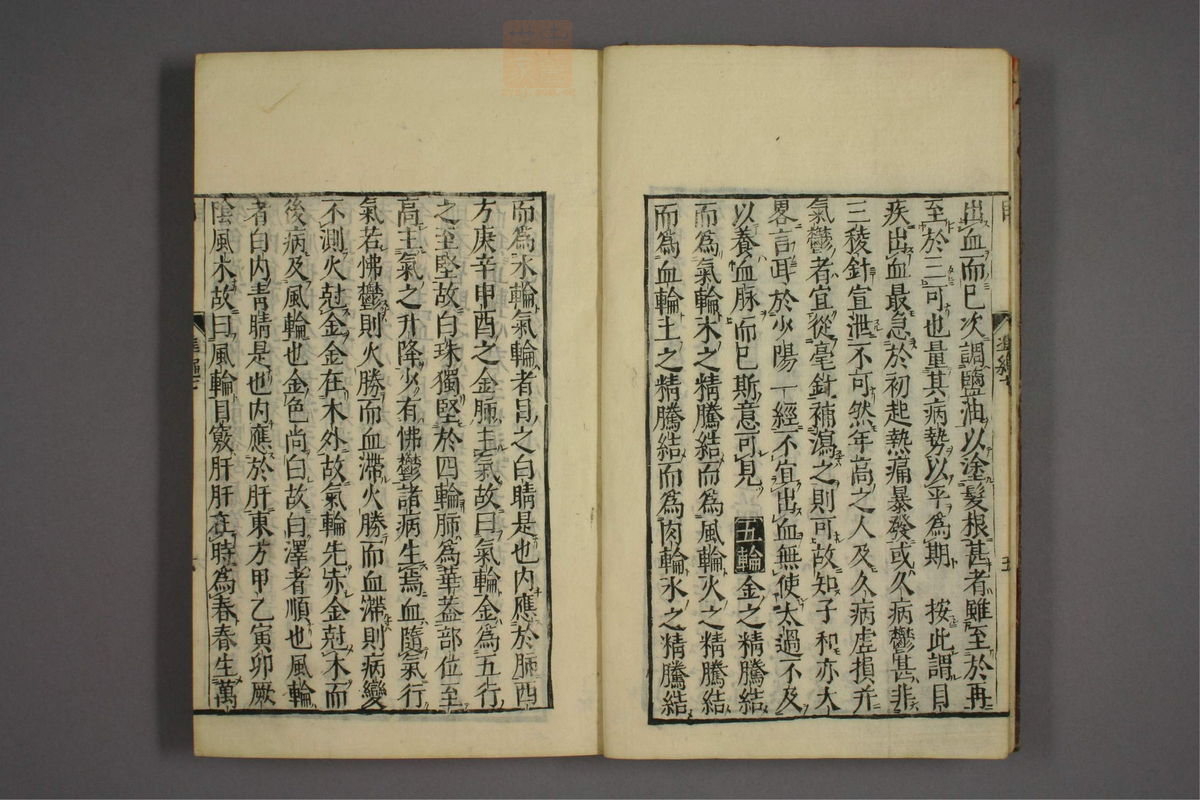 出血而已次調鹽油以塗髮根甚者雖至於再
至於三可也量其病勢以平為期　按此謂目
疾出血最急於初起熱痛暴發或久病鬱甚非
三稜針宣泄不可然年高之人及久病虛損并
氣鬱者宜從毫針補瀉之則可故知子和亦大
畧言耳於少陽一經不宜出血無使太過不及
以養血脉而已斯意可見　五輪　金之精騰結
而為氣輪木之精騰結而為風輪火之精騰結
而為血輪土之精騰結而為肉輪水之精騰結
而為水輪氣輪者目之白睛是也内應於肺西
方庚辛申酉之金肺主氣故曰氣輪金為五行
之至堅故白珠獨堅於四輪肺為華蓋部位至
高主氣之升降少有怫鬱諸病生焉血隨氣行
氣若怫鬱則火勝而血滯火勝而血滯則病變
不測火尅金金在木外故氣輪先赤金尅木而
後病及風輪也金色尚白故白澤者順也風輪
者白内青睛是也内應於肝東方甲乙寅卯厥
陰風木故曰風輪目竅肝肝在時為春春生萬